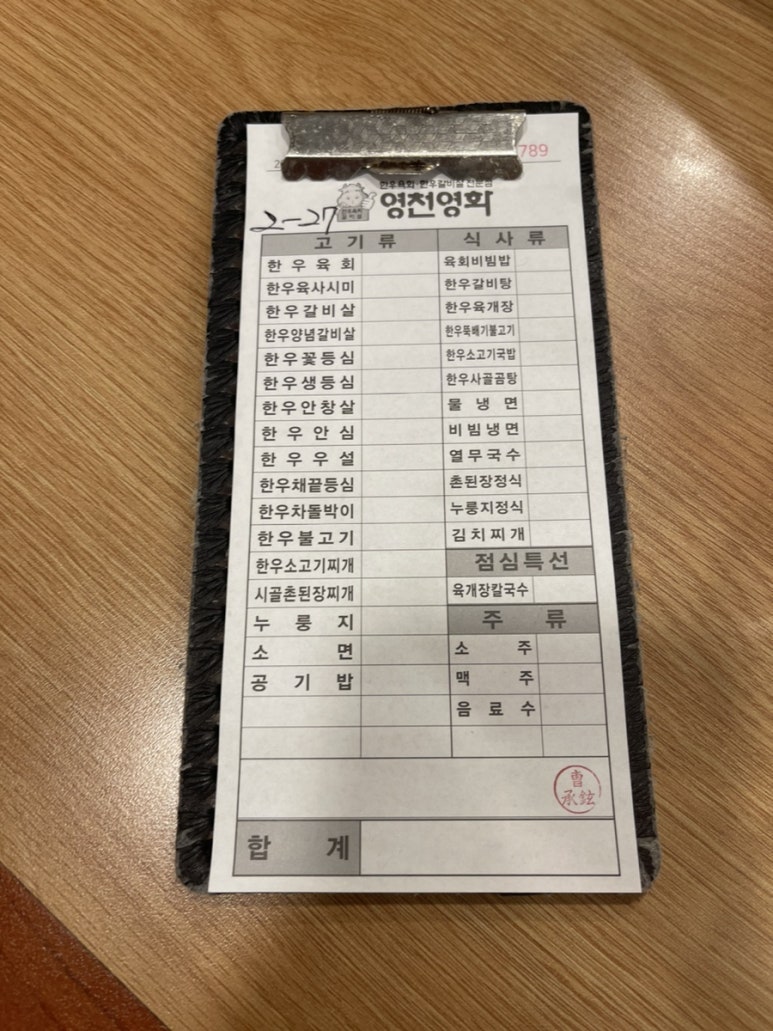 789
한우육회·한우갈비살 전문점
영천영화
2-27
고 기 류
한 우 육 회
한우육사시미
한우갈비살
한우양념갈비살
한우꽃등심
한우생등심
한우안창살
한 우 안 심
한 우 우 설
한우채끝등심
한우차돌박이
한우불고기
한우소고기찌개
시골촌된장찌개
누 룽 지
소 면
공 기 밥
식 사 류
육회비빔밥
한우갈비탕
한우육개장
한우뚝배기불고기
한우소고기국밥
한우사골곰탕
물 냉 면
비빔냉면
열무국수
촌된장정식
누룽지정식
김치찌개
점심특선
육개장칼국수
주 류
소 주
맥 주
음 료 수
曺
承鉉
합 계